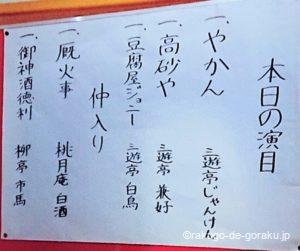 本日の演目
一、やかん 三遊亭じゃんけん
一、高砂や 三遊亭 兼好
一、豆腐屋ジョニー 三遊亭 白鳥
仲入り
一、厩火事 桃月庵 白酒
一、御神酒徳利 柳亭 市馬
@rakugo-de-goraku.jp